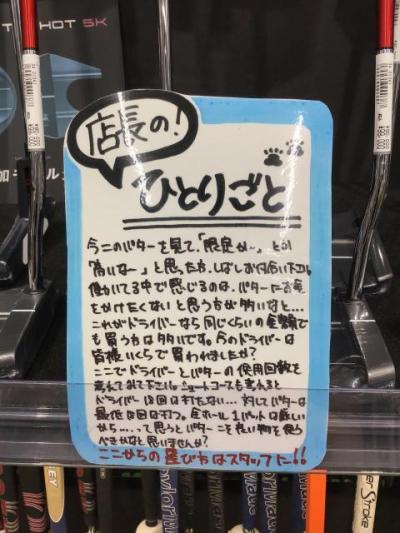 HOT 5K
店長の!
ひとりごと
今このパターを見て、「限定か~」とか
「高いな~」と思った方。しばしお付合い下さい。
働いてる中で感じるのは、パターにお金
をかけたくないと思う方が多いなと…
これがドライバーなら同じくらいの金額で
も買う方は多いです。今のドライバーは
皆様いくらで買われましたか?
ここでドライバーとパターの使用回数を
考えてみて下さい。ショートコースも考えると
ドライバー18回は打たない…対してパターは
最低18回は打つ。全ホール1パットは厳しい
から…。って思うとパターこそ良い物を使う
べきかなと思いませんか?
ここからの選び方はスタッフに!!